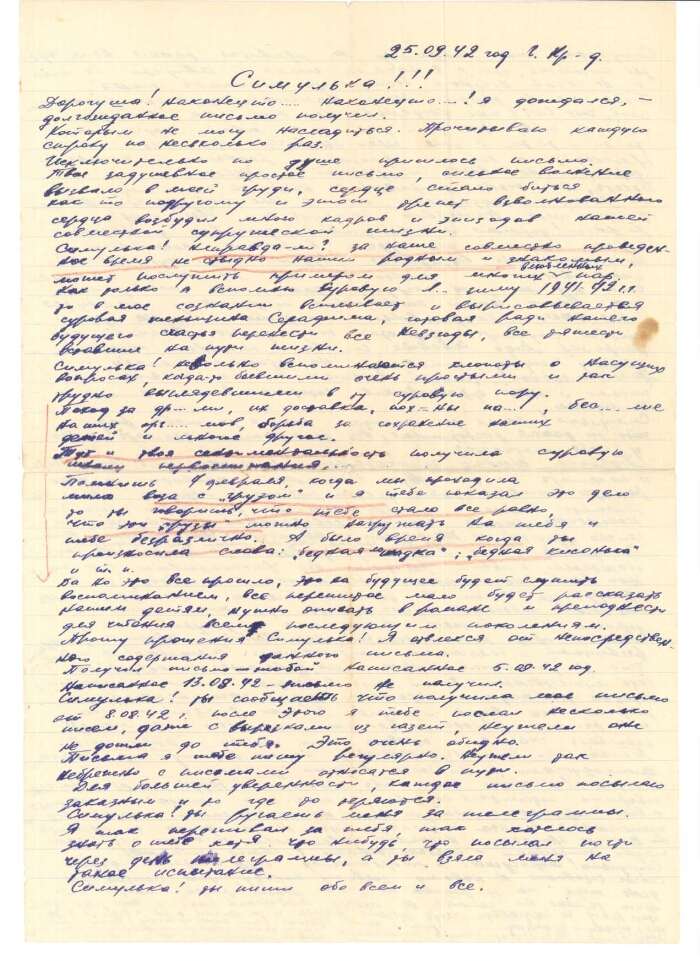 25.09.42 год Г. Кр-д.
Симулька!!!
Дорогуша! Наконецто..... наконецто....! я дождался, –
долгожданное письмо получил.
Которым не могу насладиться. Прочитываю каждую
строку по несколько раз.
Исключительно по душе пришлось письмо.
Твое задушевное простое письмо, сильное волнение
вызвало в моей груди, сердце стало биться
как то подругому и этот трепет взволнованного
сердца возбудил много кадров и эпизодов нашей
совместной супружеской жизни.
Симулька! Неправда-ли? за наше совместно проведен-
ное время не стыдно нашим родным и знакомым,
может послужить примером для многих пар.
Как только я вспомню суровую Л.. зиму 1941-42 г.г.
то в мое сознании всплывает и вырисовывается
суровая женщина Серафима, готовая ради нашего
будущего счастья перенести все невзгоды, все тяжести
вставшие на пути жизни.
Симулька! Невольно вспоминаются хлопоты о насущих
вопросах, когда-то бывшими очень простыми и так
трудно выглядевшиеи в ту суровую пору.
Поход за др...ми, их доставка, пох-ны па... , бес....ние
наших орг.... мов, борьба за сохранение наших
детей и многое другое.
Тут и твоя сентиментальность получила суровую
Помнишь 9 февраля, когда мы проходила
мимо воза с "грузом" и я тебе показал это дело
то ты говоришь, что тебе стало все равно,
что эти "грузы" можно нагружать на тебя и
тебе безразлично. А было время когда ты
произносила слова: "бедная лошадка"; "бедная кисонька"
и т. п.
Да но это все прошло, это на будущее будет служить
воспоминанием, все пережитое мало будет рассказать
нашим детям, нужно описать в романе и преподнести
для чтения всем последующим поколениям.
Прошу прощения Симулька! Я отвлекся от непосредствен-
ного содержания данного письма.
Получил письмо тобой написанное 5.09.42 год.
Написанное 13.08.42 – письмо не получил.
Симулька! ты сообщаеть что получила мое письмо
от 8.08.42 г. после этого я тебе послал несколько
писем, даже с вырезками из газет, неужели оне
не дошли до тебя. Это очень обидно.
Письма я тебе пишу регулярно. Неужели так
небрежно с письмами относятся в пути.
Для большей уверенности, каждое письмо посылаю
заказным и то где то теряются.
Симулька! ты ругаешь меня за телеграммы.
Я так переживал за тебя, так хотелось
знать о тебе хотя что нибудь, что посылал почти
через день телеграммы, а ты взяла меня на
такое испытание.
Симулька! ты пиши обо всем и все.